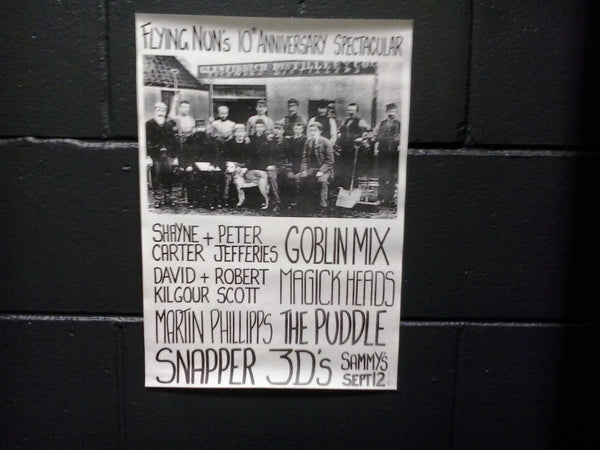 FLYING NUN'S 10TH ANNIVERSARY SPECTACULAR
DISTILLERY
SHAYNE + PETER
CARTER JEFFERIES
GOBLIN MIX
DAVID + ROBERT
KILGOUR SCOTT
MAGICK HEADS
MARTIN PHILLIPPS
THE PUDDLE
SNAPPER
3D's
SAMMY'S
SEPT 12